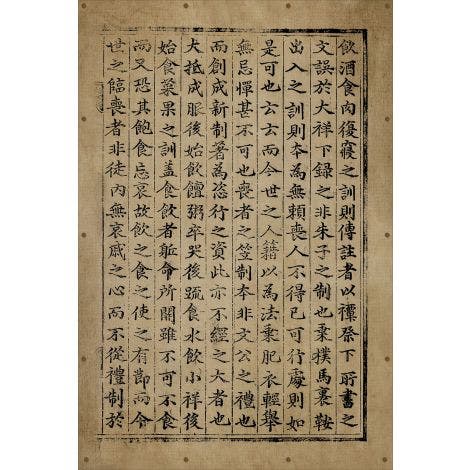 飲酒食肉復寢之訓則傳註者以禫祭下所書之
文誤於大祥下録之非朱子之制也乗樸馬裹鞍
出入之訓則本為無賴喪人不得已可行處則如
是可也云云而今世之人籍以為法乗肥衣輕舉
無忌憚甚不可也喪者之笠制本非文公之禮也
而創成新制著為恣行之資此亦不經之大者也
大抵成服後始飲饘粥卒哭後疏食水飲小祥後
始食菜果之訓盖食飲者軀命所關雖不可不食
而又恐其飽食忘哀故飲之食之使之有節而今
世之臨喪者非徒內無哀戚之心而不從禮制於